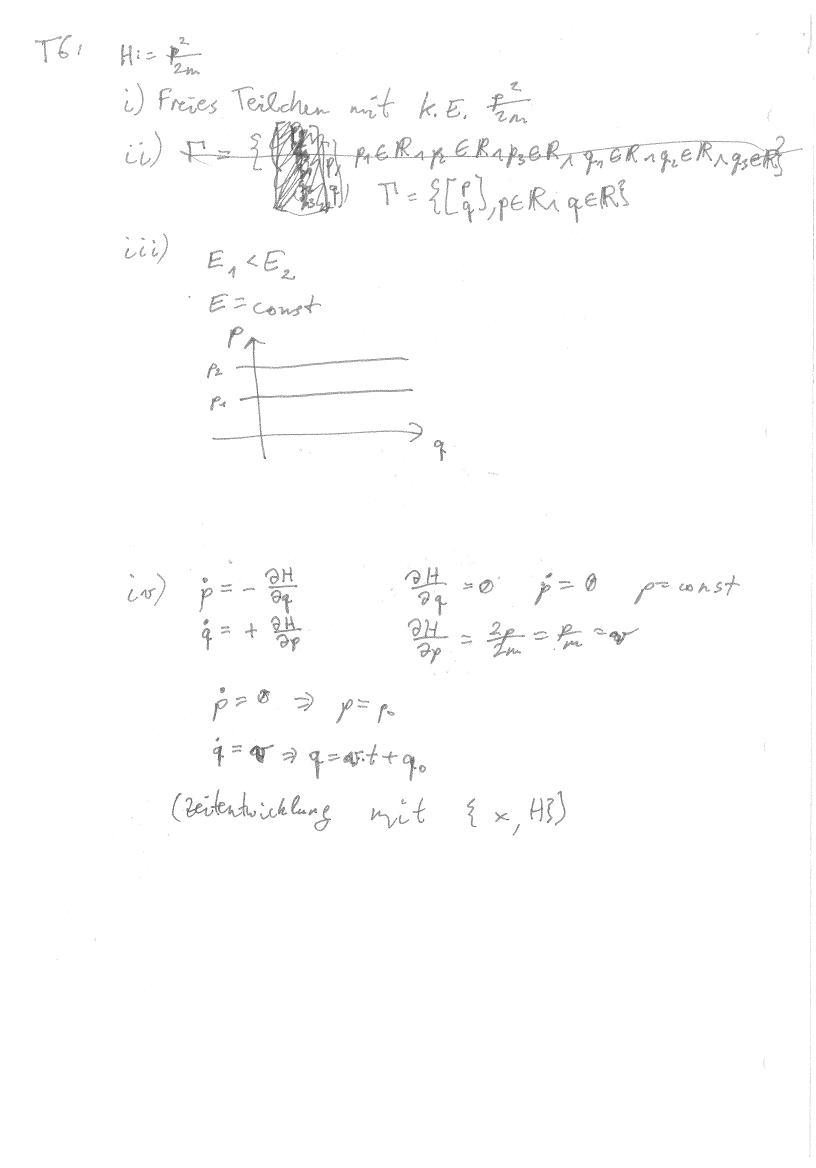 T6:
H:= p²/2m
i) Freies Teilchen mit k.E. p²/2m
ii) Γ = { p₁∈ℝ∧p₂∈ℝ∧p₃∈ℝ∧q₁∈ℝ∧q₂∈ℝ∧q₃∈ℝ}
Γ = {[p q], p∈ℝ∧q∈ℝ}
iii) E₁ < E₂
E = const
p
p₂
p₁
q
iv) ṗ = - ∂H/∂q ∂H/∂q = 0 ṗ = 0 p = const
q̇ = + ∂H/∂p ∂H/∂p = 2p/2m = p/m = v
ṗ = 0 ⇒ p = p₀
q̇ = v ⇒ q = v·t + q₀
(Zeitentwicklung mit { x, H})